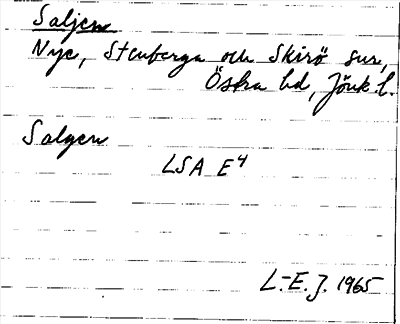 Saljen
Nye, Stenberga och Skirö snr,
Östra hd, Jönk l.
Salgen
LSA E4
L-E. J. 1965